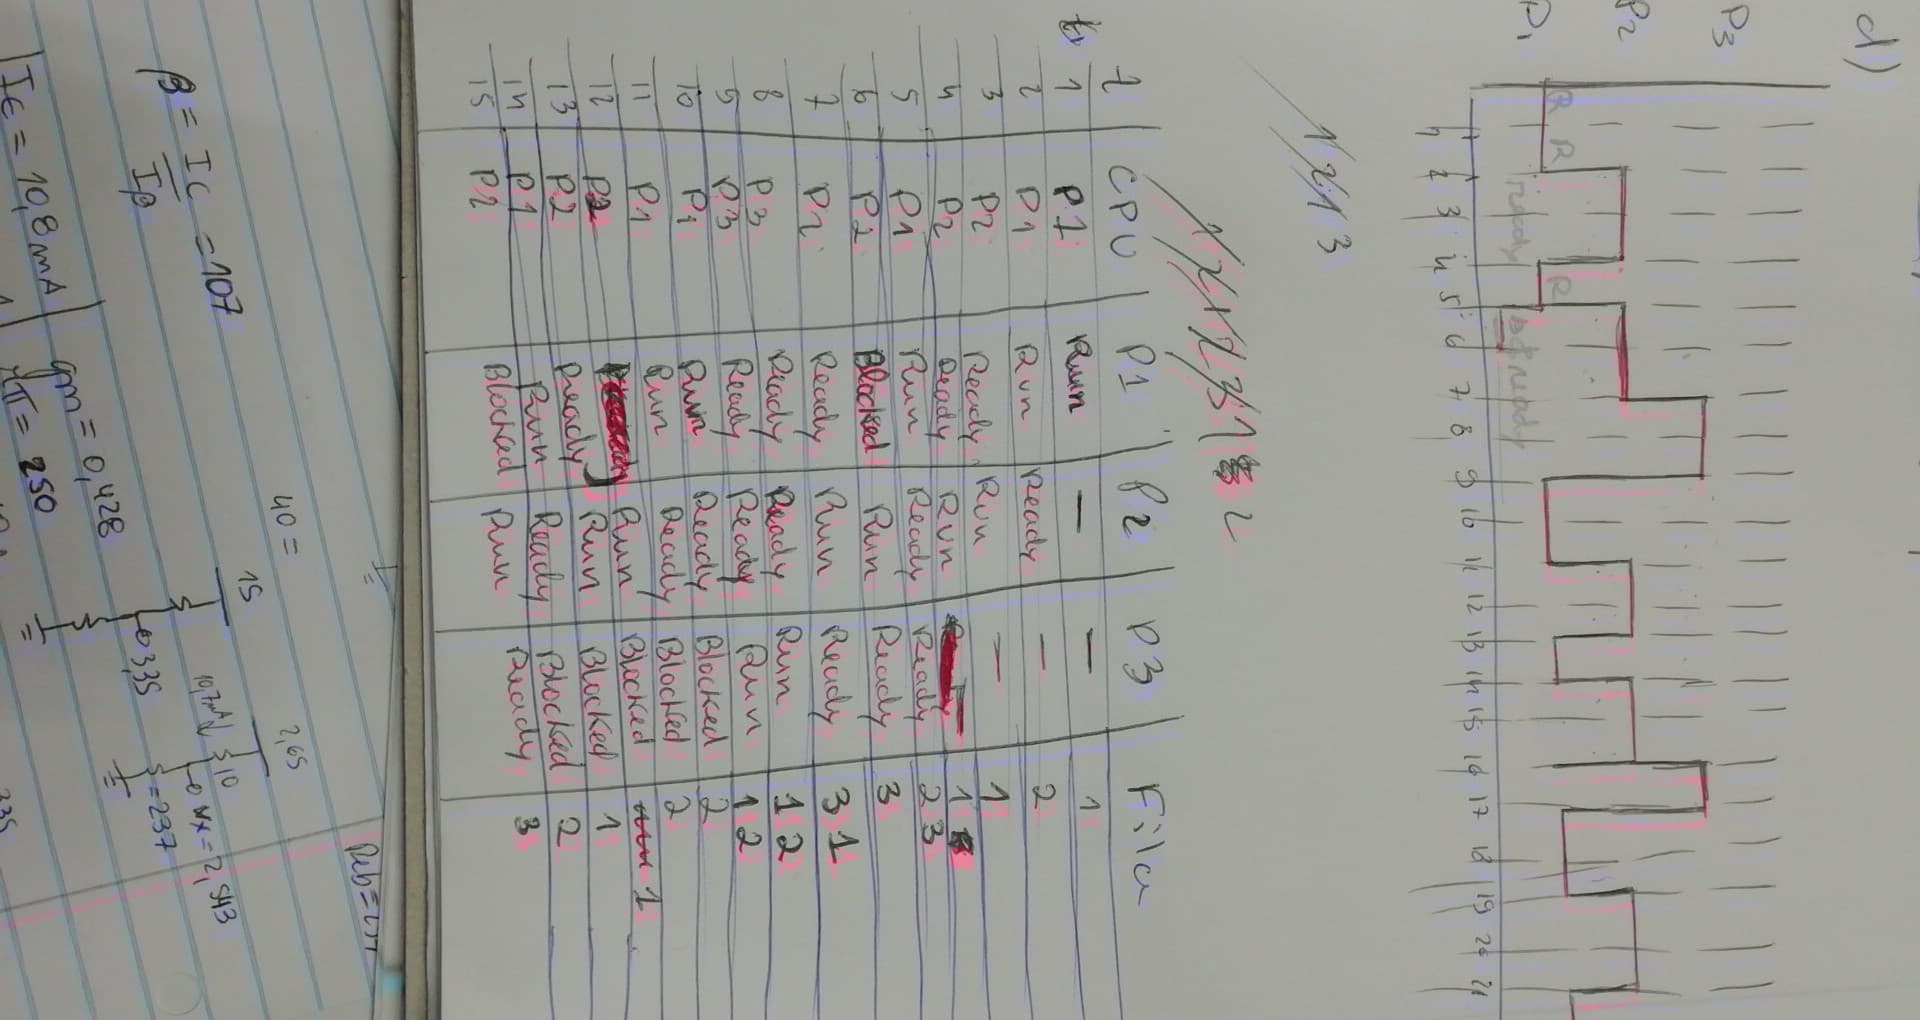 d)
P3
P2
R R R
P1 ready ready
1 2 3 4 5 6 7 8 9 10 11 12 13 14 15 16 17 18 19 20 21
1 2 1 3
1 2 1 2 3 1 2
t CPU P1 P2 P3 Fila
1 P1 Run — — 1
2 P1 Run Ready — 2
3 P2 Ready Run — 1
4 P2 Ready Run — 1
5 P1 Run Ready Ready 2 3
6 P2 Blocked Run Ready 3
7 P2 Ready Run Ready 3 1
8 P3 Ready Ready Run 1 2
9 P3 Ready Ready Run 1 2
10 P1 Run Ready Blocked 2
11 P1 Run Ready Blocked 2
12 P2 Run Blocked 1
13 P2 Ready Run Blocked 1
14 P1 Run Ready Blocked 2
15 P2 Blocked Run Ready 3
40 =
2,65
15
10,7mA 10
β = Ic / Iβ = 107
Vx = 2,543
3,35
= 237
gm = 0,428
IE = 10,8mA
rπ = 250
335